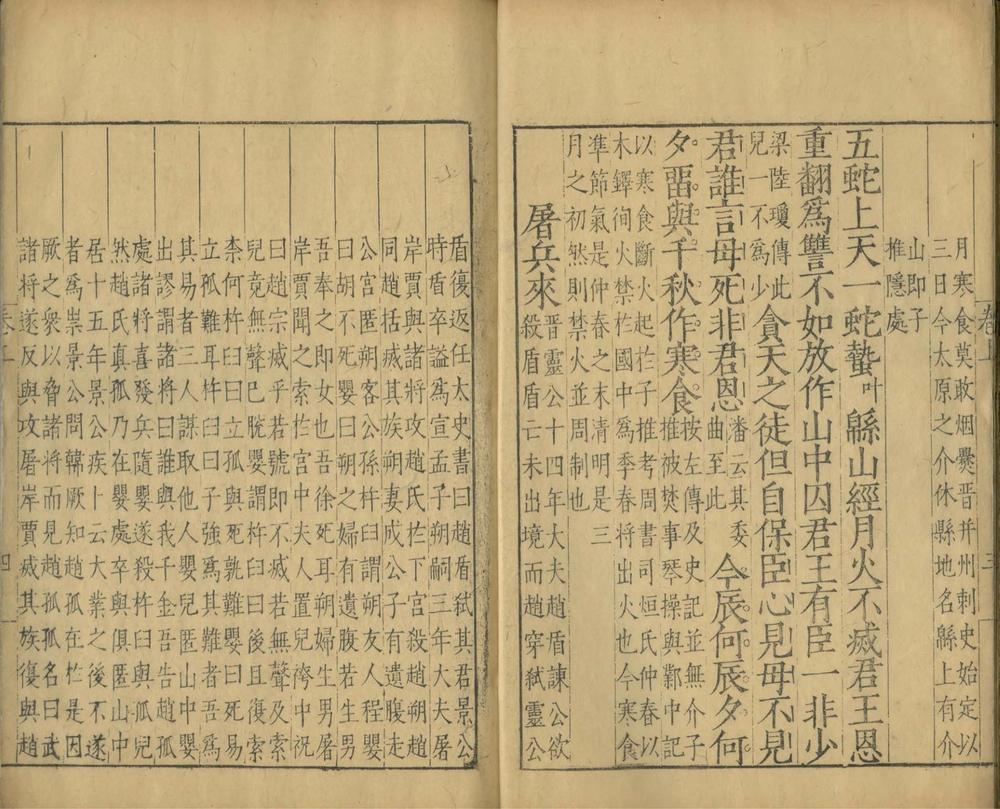 月寒食莫敢烟爨晉并州刺史始定以
三日今太原之介休縣地名緜上有介
山即子
推隱處
五蛇上天一蛇蟄叶緜山經月火不滅君王恩
重翻為讐不如放作山中囚君王有臣一非少
梁陸瓊傳此
兒一不為少
貪天之徒但自保臣心見母不見
君誰言母死非君恩
潘云其委
曲至此
今辰何辰夕何
夕畱與千秋作寒食
按左傳及史記並無介子
推被焚事琴操與鄴中記
以寒食斷火起於子推考周書司烜氏仲春以
木鐸徇火禁於國中為季春將出火也今寒食
準節氣是仲春之末清明是三
月之初然則禁火並周制也
屠兵來
晉靈公十四年大夫趙盾諫公欲
殺盾盾亡未出境而趙穿弑靈公
卷上
三
盾復返任太史書曰趙盾弑其君景公
時盾卒謚為宣孟子朔嗣三年大夫屠
岸賈與諸將攻趙氏於下宮殺趙朔趙
同趙括滅其族朔妻成公子有遺腹走
公宮匿朔客公孫杵臼謂朔友人程嬰
曰胡不死嬰曰朔之婦有遺腹若生男
吾奉之即女也吾徐死耳朔婦生男屠
岸賈聞之索於宮中夫人置兒袴中祝
曰趙宗滅乎若號即不滅若無聲及索
兒竟無聲已脫嬰謂杵臼曰若後且復索
柰何杵臼曰立孤與死孰難嬰曰死易
立孤難耳杵臼曰子強為其難者吾為
其易者三人謀取他人嬰兒匿山中嬰
出謬謂諸將曰誰與我千金吾告趙孤
處諸將喜發兵隨嬰遂殺杵臼與孤兒
然趙氏真孤乃在嬰處卒與俱匿山中
居十五年景公疾卜云大業之後不遂
者為祟景公問韓厥知趙孤在於是因
厥之衆以脅諸將而見趙孤孤名曰武
諸將遂反與攻屠岸賈滅其族復與趙
四